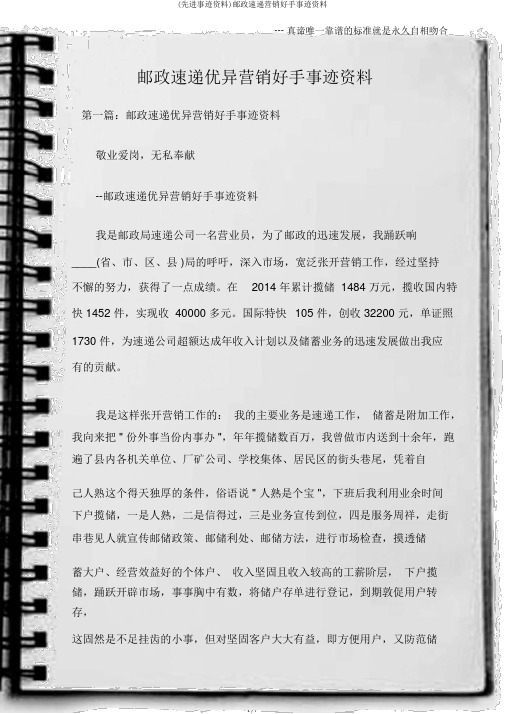 (先进事迹资料)邮政速递营销好手事迹资料
--- 真谛唯一靠谱的标准就是永久自相吻合
邮政速递优异营销好手事迹资料
第一篇：邮政速递优异营销好手事迹资料
敬业爱岗，无私奉献
--邮政速递优异营销好手事迹资料
我是邮政局速递公司一名营业员，为了邮政的迅速发展，我踊跃响
____(省、市、区、县 )局的呼吁，深入市场，宽泛张开营销工作，经过坚持
不懈的努力，获得了一点成绩。在 2014 年累计揽储 1484 万元，揽收国内特
快 1452 件，实现收 40000 多元。国际特快 105 件，创收 32200 元，单证照
1730 件，为速递公司超额达成年收入计划以及储蓄业务的迅速发展做出我应
有的贡献。
我是这样张开营销工作的： 我的主要业务是速递工作， 储蓄是附加工作，
我向来把 " 份外事当份内事办 "，年年揽储数百万，我曾做市内送到十余年，跑
遍了县内各机关单位、厂矿公司、学校集体、居民区的街头巷尾，凭着自
己人熟这个得天独厚的条件，俗语说 " 人熟是个宝 "，下班后我利用业余时间
下户揽储，一是人熟，二是信得过，三是业务宣传到位，四是服务周祥，走街
串巷见人就宣传邮储政策、邮储利处、邮储方法，进行市场检查，摸透储
蓄大户、经营效益好的个体户、 收入坚固且收入较高的工薪阶层， 下户揽
储，踊跃开辟市场，事事胸中有数，将储户存单进行登记，到期敦促用户转
存，
这固然是不足挂齿的小事，但对坚固客户大大有益，即方便用户，又防范储